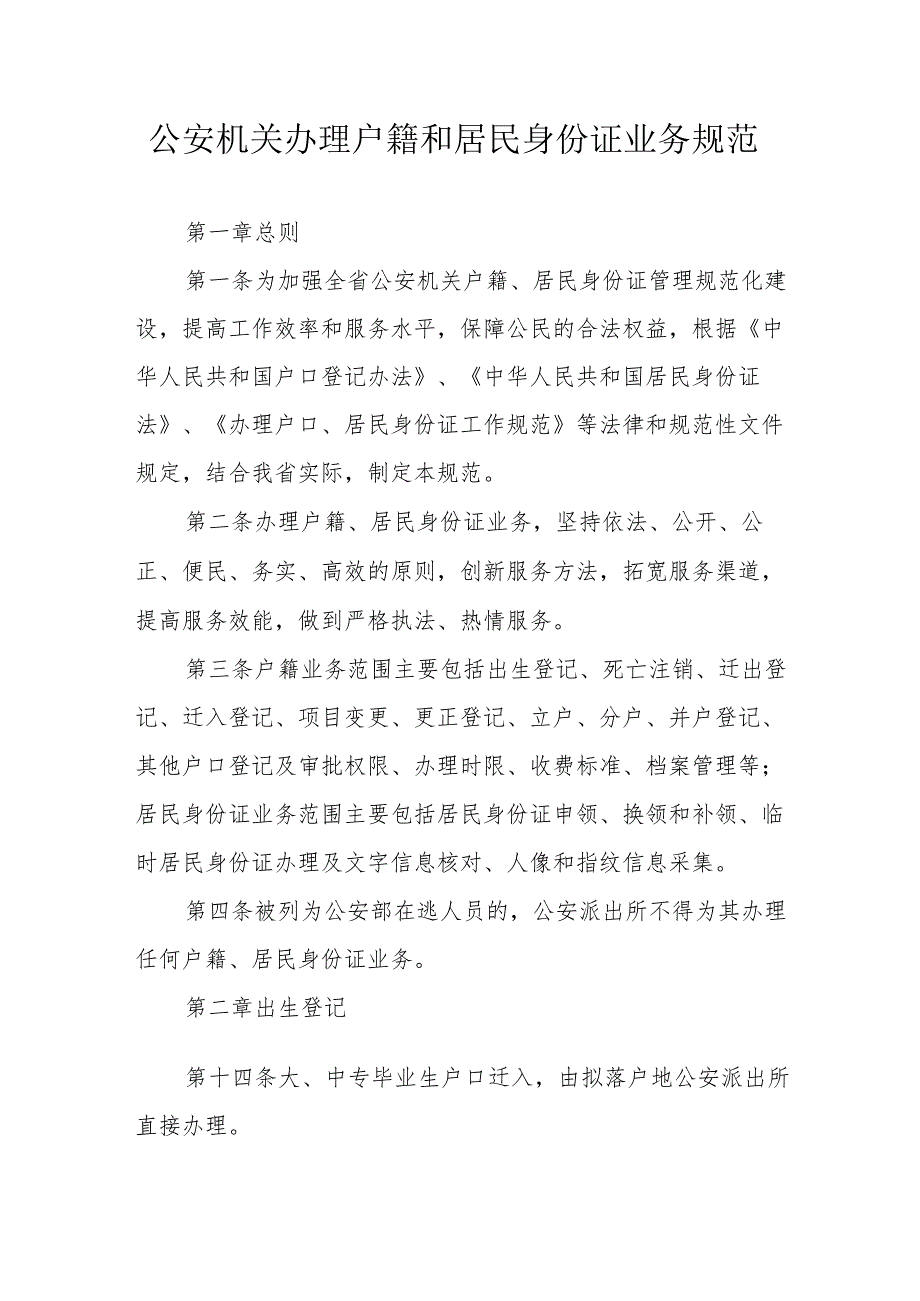 公安机关办理户籍和居民身份证业务规范
第一章总则
第一条为加强全省公安机关户籍、居民身份证管理规范化建
设，提高工作效率和服务水平，保障公民的合法权益，根据《中
华人民共和国户口登记办法》、《中华人民共和国居民身份证
法》、《办理户口、居民身份证工作规范》等法律和规范性文件
规定，结合我省实际，制定本规范。
第二条办理户籍、居民身份证业务，坚持依法、公开、公
正、便民、务实、高效的原则，创新服务方法，拓宽服务渠道，
提高服务效能，做到严格执法、热情服务。
第三条户籍业务范围主要包括出生登记、死亡注销、迁出登
记、迁入登记、项目变更、更正登记、立户、分户、并户登记、
其他户口登记及审批权限、办理时限、收费标准、档案管理等；
居民身份证业务范围主要包括居民身份证申领、换领和补领、临
时居民身份证办理及文字信息核对、人像和指纹信息采集。
第四条被列为公安部在逃人员的，公安派出所不得为其办理
任何户籍、居民身份证业务。
第二章出生登记
第十四条大、中专毕业生户口迁入，由拟落户地公安派出所
直接办理。